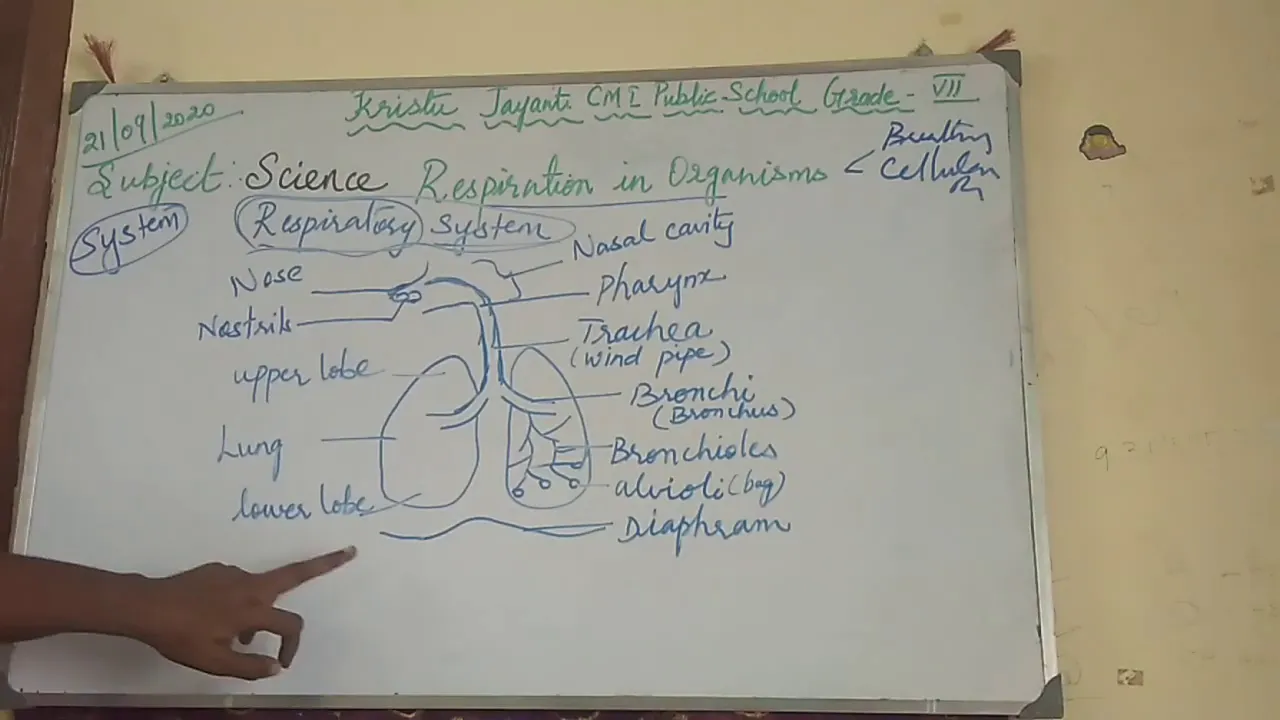 Kristu Jayanti CMI Public School Grade - VII
21/09/2020
Subject: Science Respiration in Organisms < Breathing
Cellular R
System
Respiratory System
Nasal cavity
Nose
Pharynx
Nostrils
Trachea
(wind pipe)
upper lobe
Bronchi
(Bronchus)
Lung
Bronchioles
alvioli (bag)
lower lobe
Diaphram